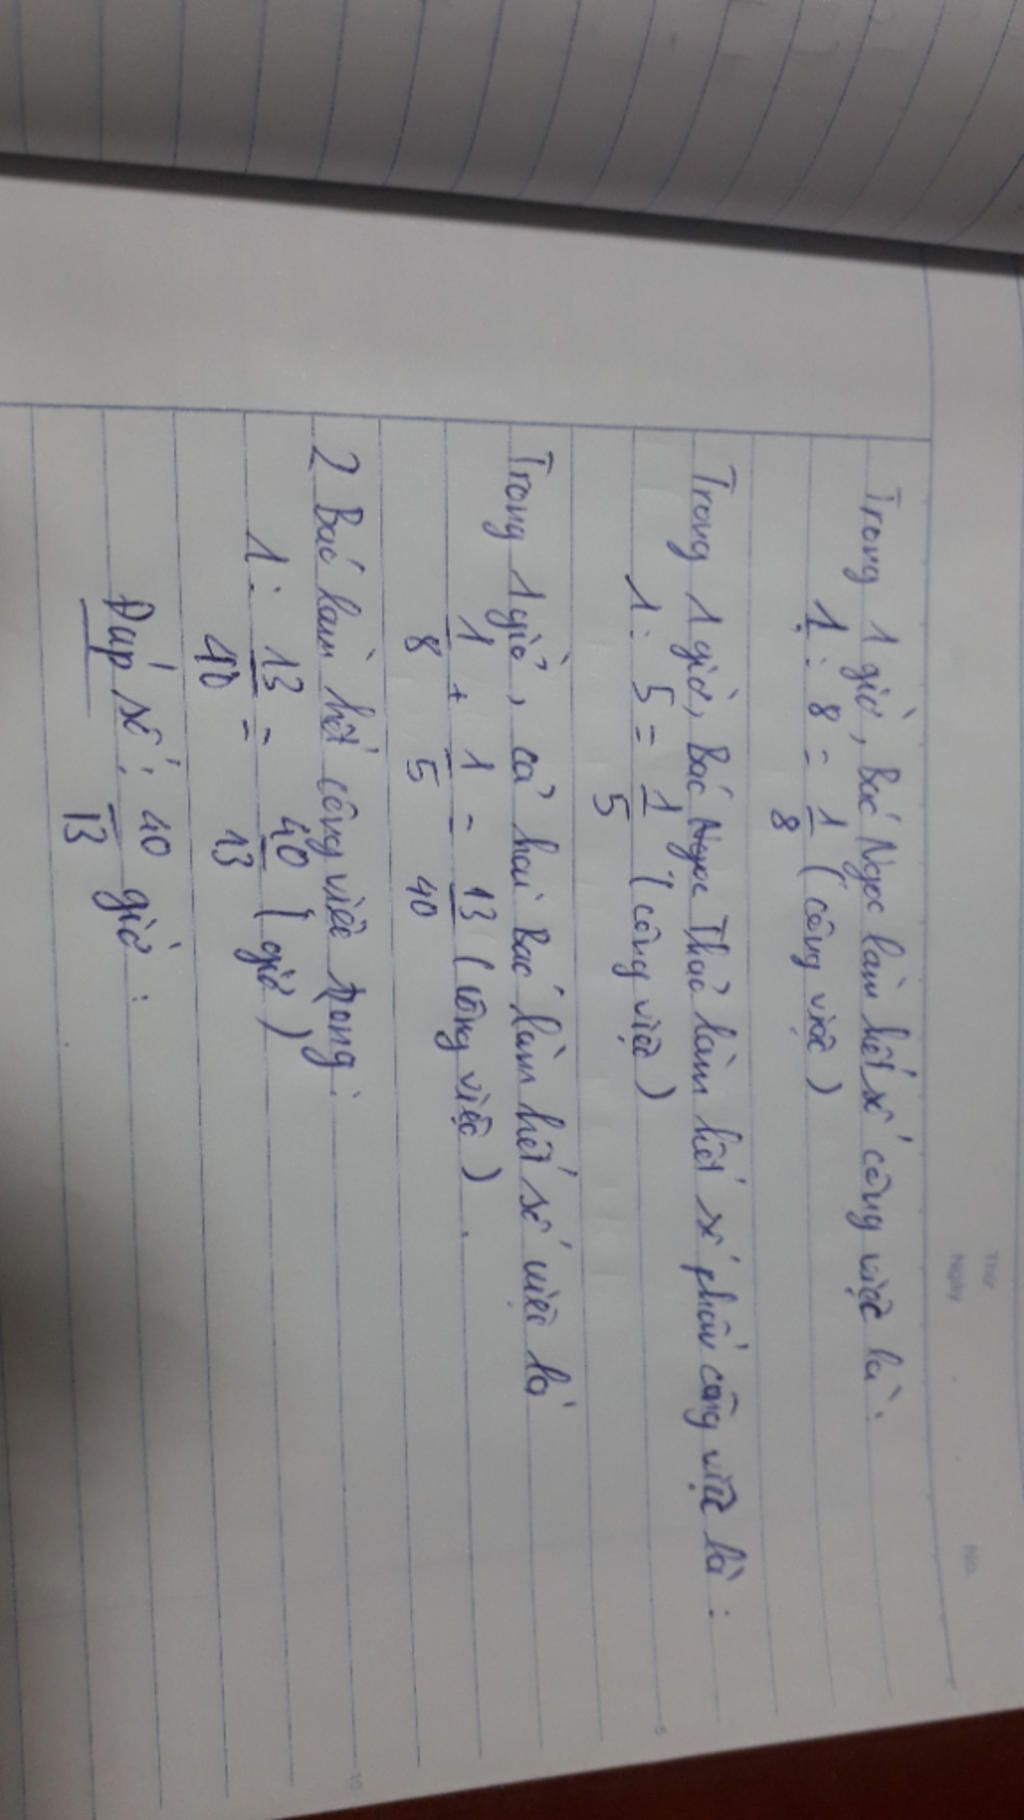 Thứ
Ngày
No.
Trong 1 giờ, Bác Ngọc làm hết số công việc là:
1 : 8 = 1/8 (công việc)
Trong 1 giờ, Bác Thảo làm hết số phần công việc là:
1 : 5 = 1/5 (công việc)
5
Trong 1 giờ, cả hai Bác làm hết số việc là
1/8 + 1/5 = 13/40 (công việc).
2 Bác làm hết công việc trong:
10
1 : 13/40 = 40/13 (giờ)
Đáp số: 40/13 giờ.